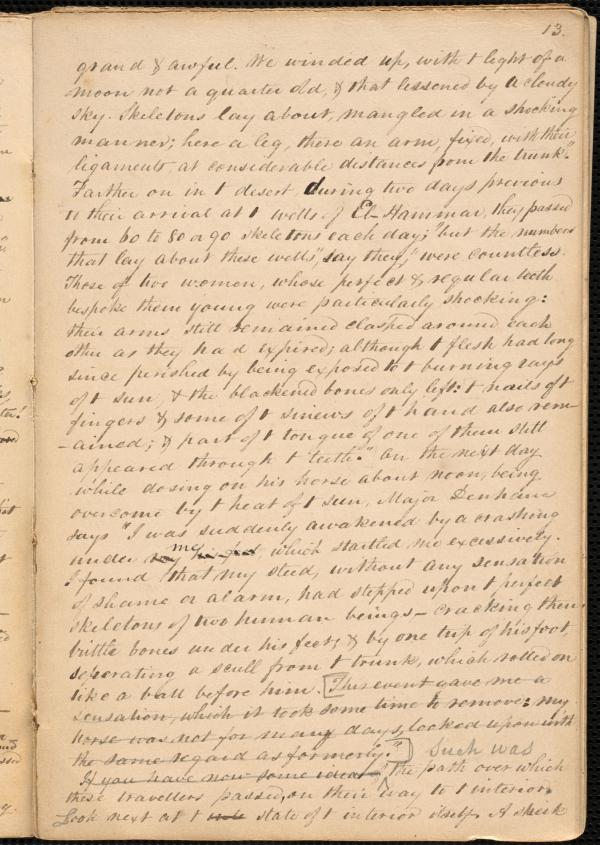 13.
grand & awful. We winded up, with t light of a
moon not a quarter old, & that lessened by a cloudy
sky. Skeletons lay about, mangled in a shocking
manner; here a leg, there an arm, fixed, with their
ligaments, at considerable distances from the trunk."
Farther on in t desert, during two days previous
to their arrival at t wells of El-Hammar, they passed
from 60 to 80 or 90 skeletons each day; "but the numbers
that lay about these wells", say they, "were countless.
Those of two women, whose perfect & regular teeth
bespoke them young were particularly shocking:
their arms still remained clasped around each
other as they had expired; although t flesh had long
since perished by being exposed to t burning rays
of t sun, & the blackened bones only left: t nails of t
fingers & some of t sinews of t hand also rem-
-ained; & part of t tongue of one of them still
appeared through t teeth." On the next day
while dosing on his horse about noon, being
overcome by t heat of t sun, Major Denham
says "I was suddenly awakened by a crashing
under me, which startled me excessively.
I found that my steed, without any sensation
of shame or alarm, had stepped upon t perfect
skeletons of two human beings — cracking their
brittle bones under his feet, & by one trip of his foot,
seperating a scull from t trunk, which rolled on
like a ball before him. [This event gave me a
sensation, which it took some time to remove; my
horse was not for many days, looked upon with
the same regard as formerly."] Such was
If you have now some idea the path over which
these travellers passed, on their way to t interior.
Look next at t state of t interior itself. A sheik